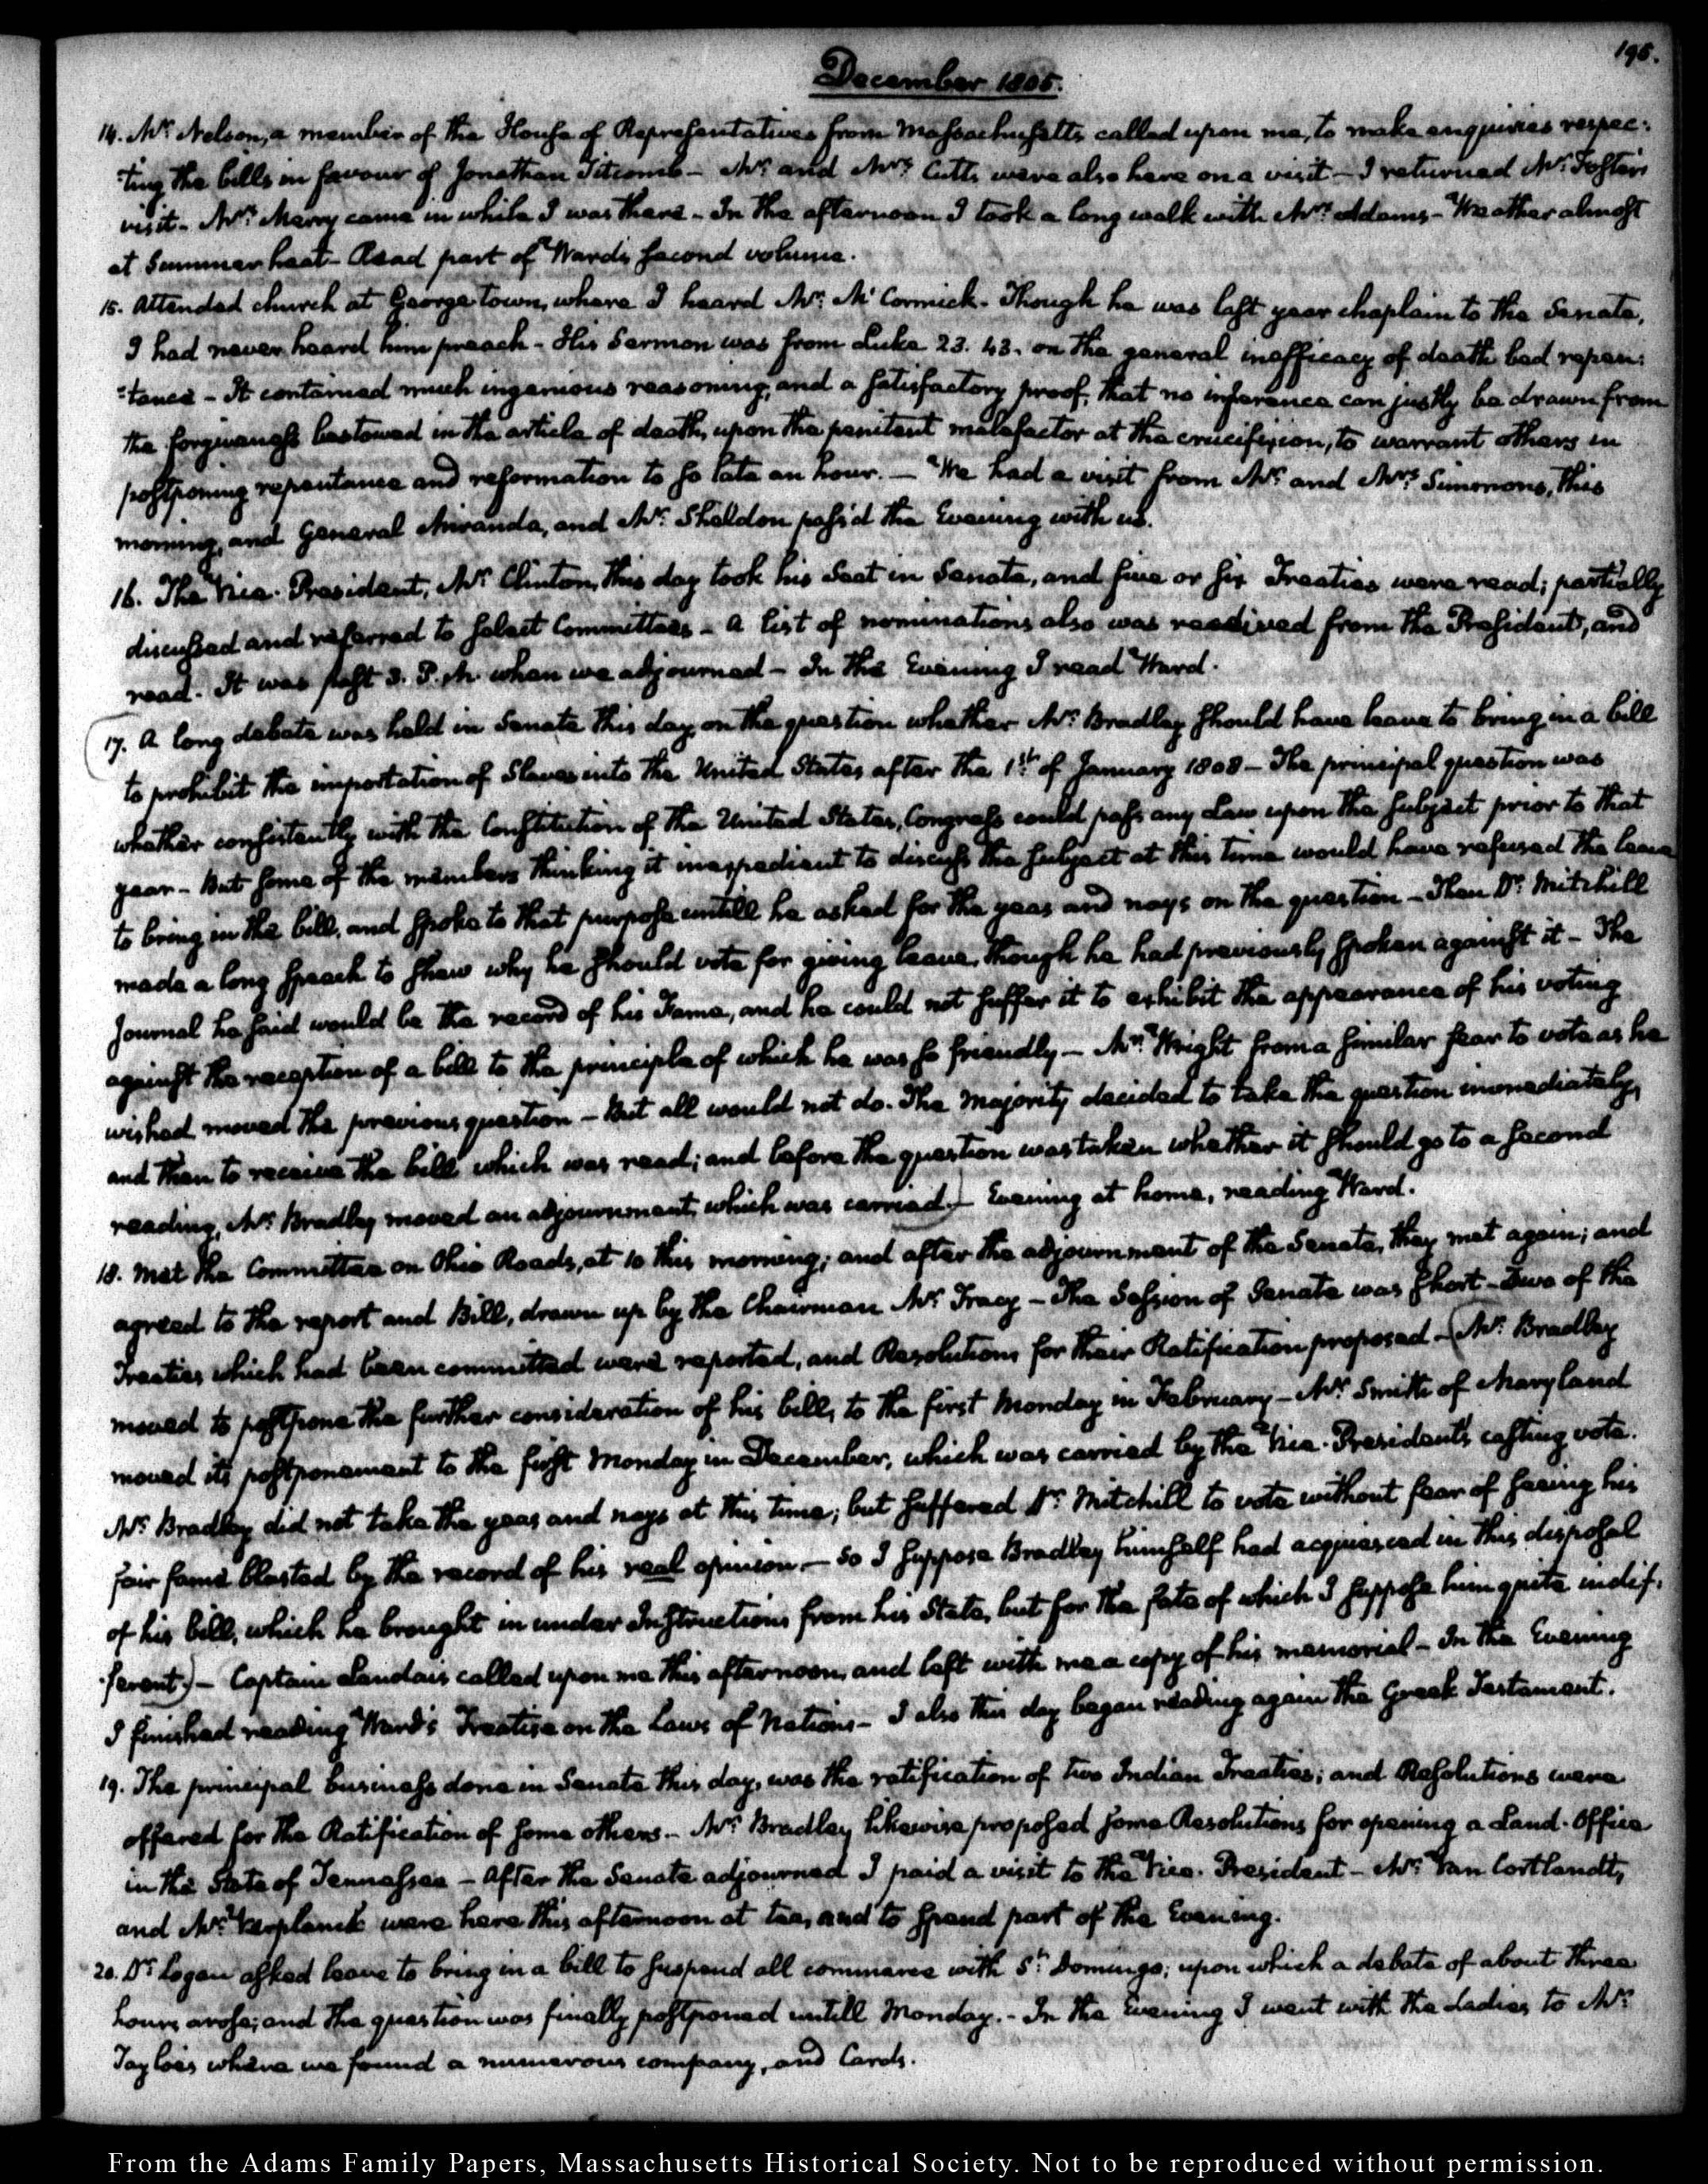 195.
December 1805.
14. Mr. Nelson, a member of the House of Representatives from Massachusetts called upon me, to make enquiries respec:
:ting the bills in favour of Jonathan Titcomb - Mr. and Mrs. Cutts were also here on a visit - I returned Mr. Foster's
visit - Mrs. Merry came in while I was there - In the afternoon I took a long walk with Mrs. Adams - Weather almost
at Summer heat - Read part of Ward's second volume.
15. Attended church at Georgetown, where I heard Mr. McCormick. Though he was last year chaplain to the Senate,
I had never heard him preach - His Sermon was from Luke 23. 43. on the general inefficacy of death bed repen:
:tance - It contained much ingenious reasoning, and a satisfactory proof, that no inference can justly be drawn from
the forgiveness bestowed in the article of death, upon the penitent malefactor at the crucifixion, to warrant others in
postponing repentance and reformation to so late an hour. - We had a visit from Mr. and Mrs. Simmons, this
morning, and General Miranda, and Mr. Sheldon pass'd the Evening with us.
16. The Vice-President, Mr. Clinton, this day took his Seat in Senate, and five or six Treaties were read; partially
discussed and referred to select Committees - A list of nominations also was received from the President, and
read. It was past 3. P.M. when we adjourned - In the Evening I read Ward.
17. A long debate was held in Senate this day, on the question whether Mr. Bradley should have leave to bring in a bill
to prohibit the importation of Slaves into the United States after the 1st. of January 1808 - The principal question was
whether consistently with the Constitution of the United States, Congress could pass any Law upon the subject prior to that
year - But some of the members thinking it inexpedient to discuss the subject at this time would have refused the leave
to bring in the bill, and spoke to that purpose untill he asked for the yeas and nays on the question - Then Dr. Mitchill
made a long speech to shew why he should vote for giving leave, though he had previously spoken against it - The
Journal he said would be the record of his Fame, and he could not suffer it to exhibit the appearance of his voting
against the reception of a bill to the principle of which he was so friendly - Mr. Wright from a similar fear to vote as he
wished moved the previous question - But all would not do. The Majority decided to take the question immediately,
and then to receive the bill which was read; and before the question was taken whether it should go to a second
reading, Mr. Bradley moved an adjournment, which was carried.) - Evening at home, reading Ward.
18. Met the Committee on Ohio Roads, at 10 this morning; and after the adjournment of the Senate, they met again; and
agreed to the report and Bill, drawn up by the Chairman Mr. Tracy - The Session of Senate was short - Two of the
Treaties which had been committed were reported, and Resolutions for their Ratification proposed - (Mr. Bradley
moved to postpone the further consideration of his bill, to the first Monday in February - Mr. Smith of Maryland
moved its postponement to the first Monday in December, which was carried by the Vice-President's casting vote.
Mr. Bradley did not take the yeas and nays at this time; but suffered Dr. Mitchill to vote without fear of seeing his
fair fame blasted by the record of his real opinion - So I suppose Bradley himself had acquiesced in this disposal
of his bill, which he brought in under Instructions from his State, but for the fate of which I suppose him quite indif:
:ferent.) - Captain Landais called upon me this afternoon, and left with me a copy of his memorial - In the Evening
I finished reading Ward's Treatise on the Laws of Nations - I also this day began reading again the Greek Testament.
19. The principal business done in Senate this day, was the ratification of two Indian Treaties; and Resolutions were
offered for the Ratification of some others - Mr. Bradley likewise proposed some Resolutions for opening a Land-Office
in the State of Tennessee - After the Senate adjourned I paid a visit to the Vice-President - Mr. Van Cortlandt,
and Mr. Verplanck were here this afternoon at tea, and to spend part of the Evening.
20. Dr. Logan asked leave to bring in a bill to suspend all commerce with St. Domingo; upon which a debate of about three
hours arose; and the question was finally postponed untill Monday. - In the Evening I went with the Ladies to Mr.
Tayloe's where we found a numerous company, and Cards.
From the Adams Family Papers, Massachusetts Historical Society. Not to be reproduced without permission.